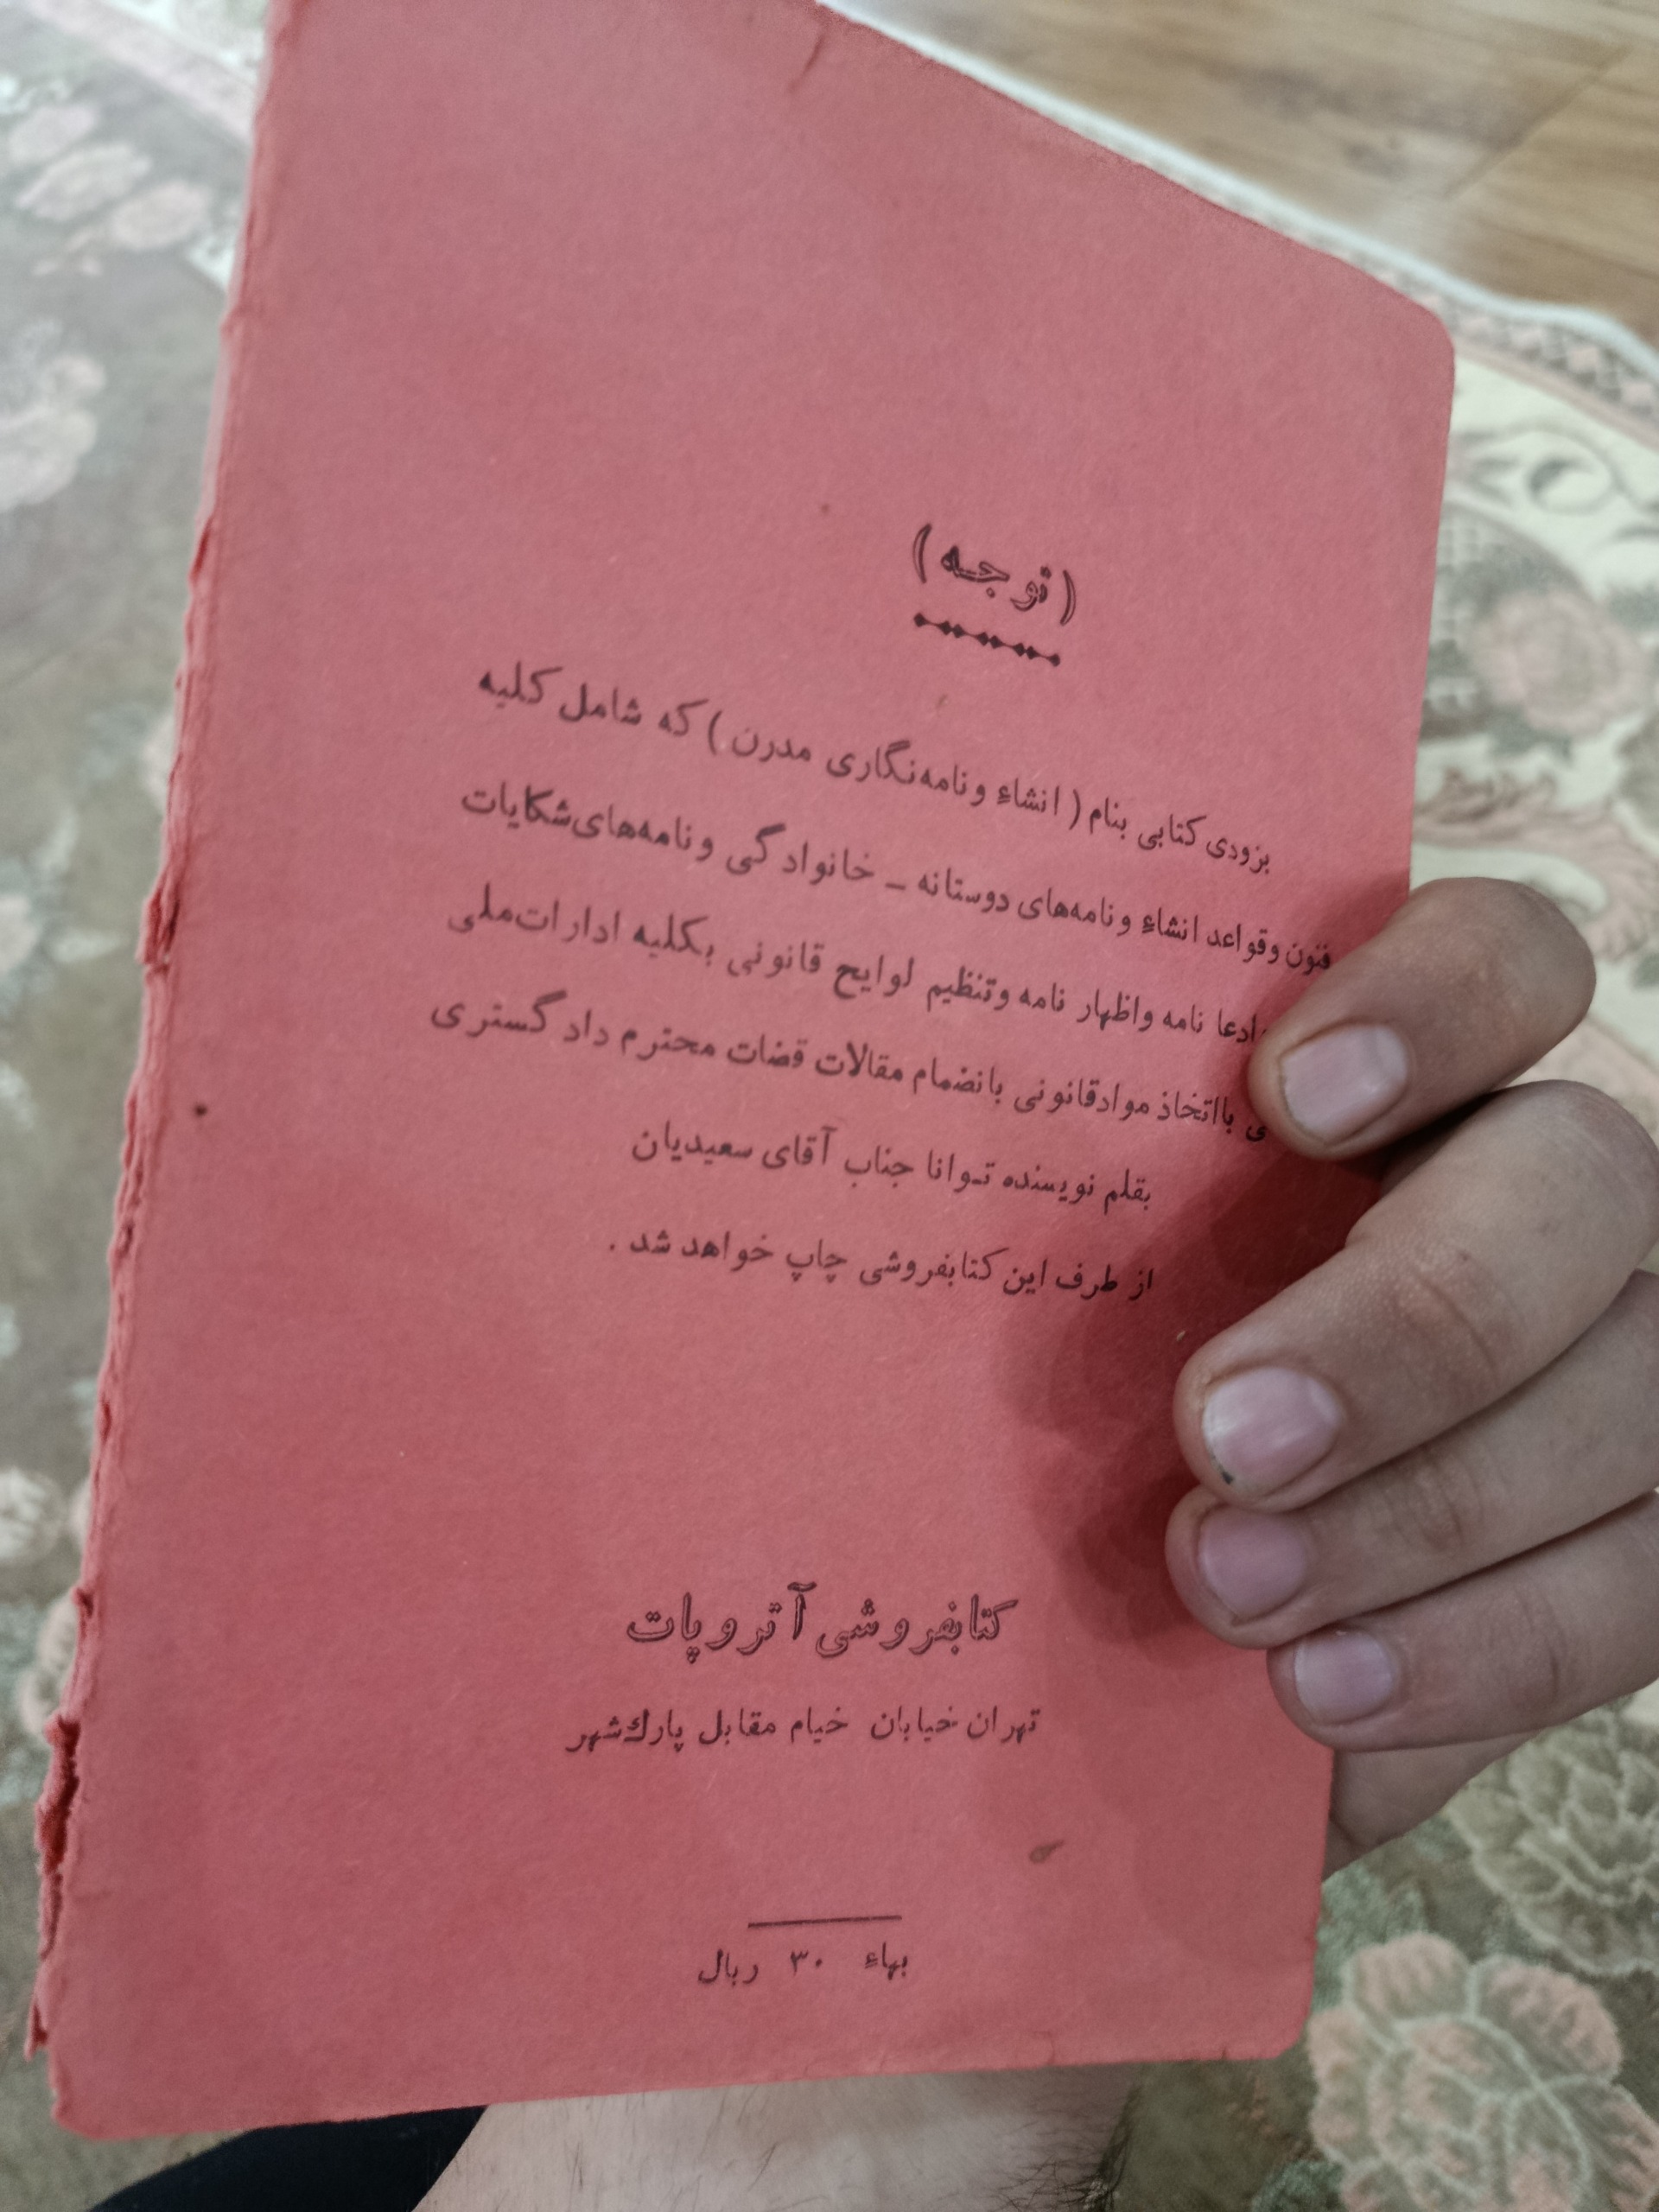 ( توجه )
بزودی کتابی بنام ( انشاء و نامه‌نگاری مدرن ) که شامل کلیه
فنون وقواعد انشاء و نامه‌های دوستانه ـ خانوادگی ونامه‌های‌شکایات
ادعا نامه واظهار نامه وتنظیم لوایح قانونی بکلیه ادارات‌ملی
بااتخاذ موادقانونی بانضمام مقالات قضات محترم دادگستری
بقلم نویسنده تـوانا جناب آقای سعیدیان
از طرف این کتابفروشی چاپ خواهد شد .
کتابفروشی آتروپات
تهران خیابان خیام مقابل پارك‌شهر
بهاء ۳۰ ریال